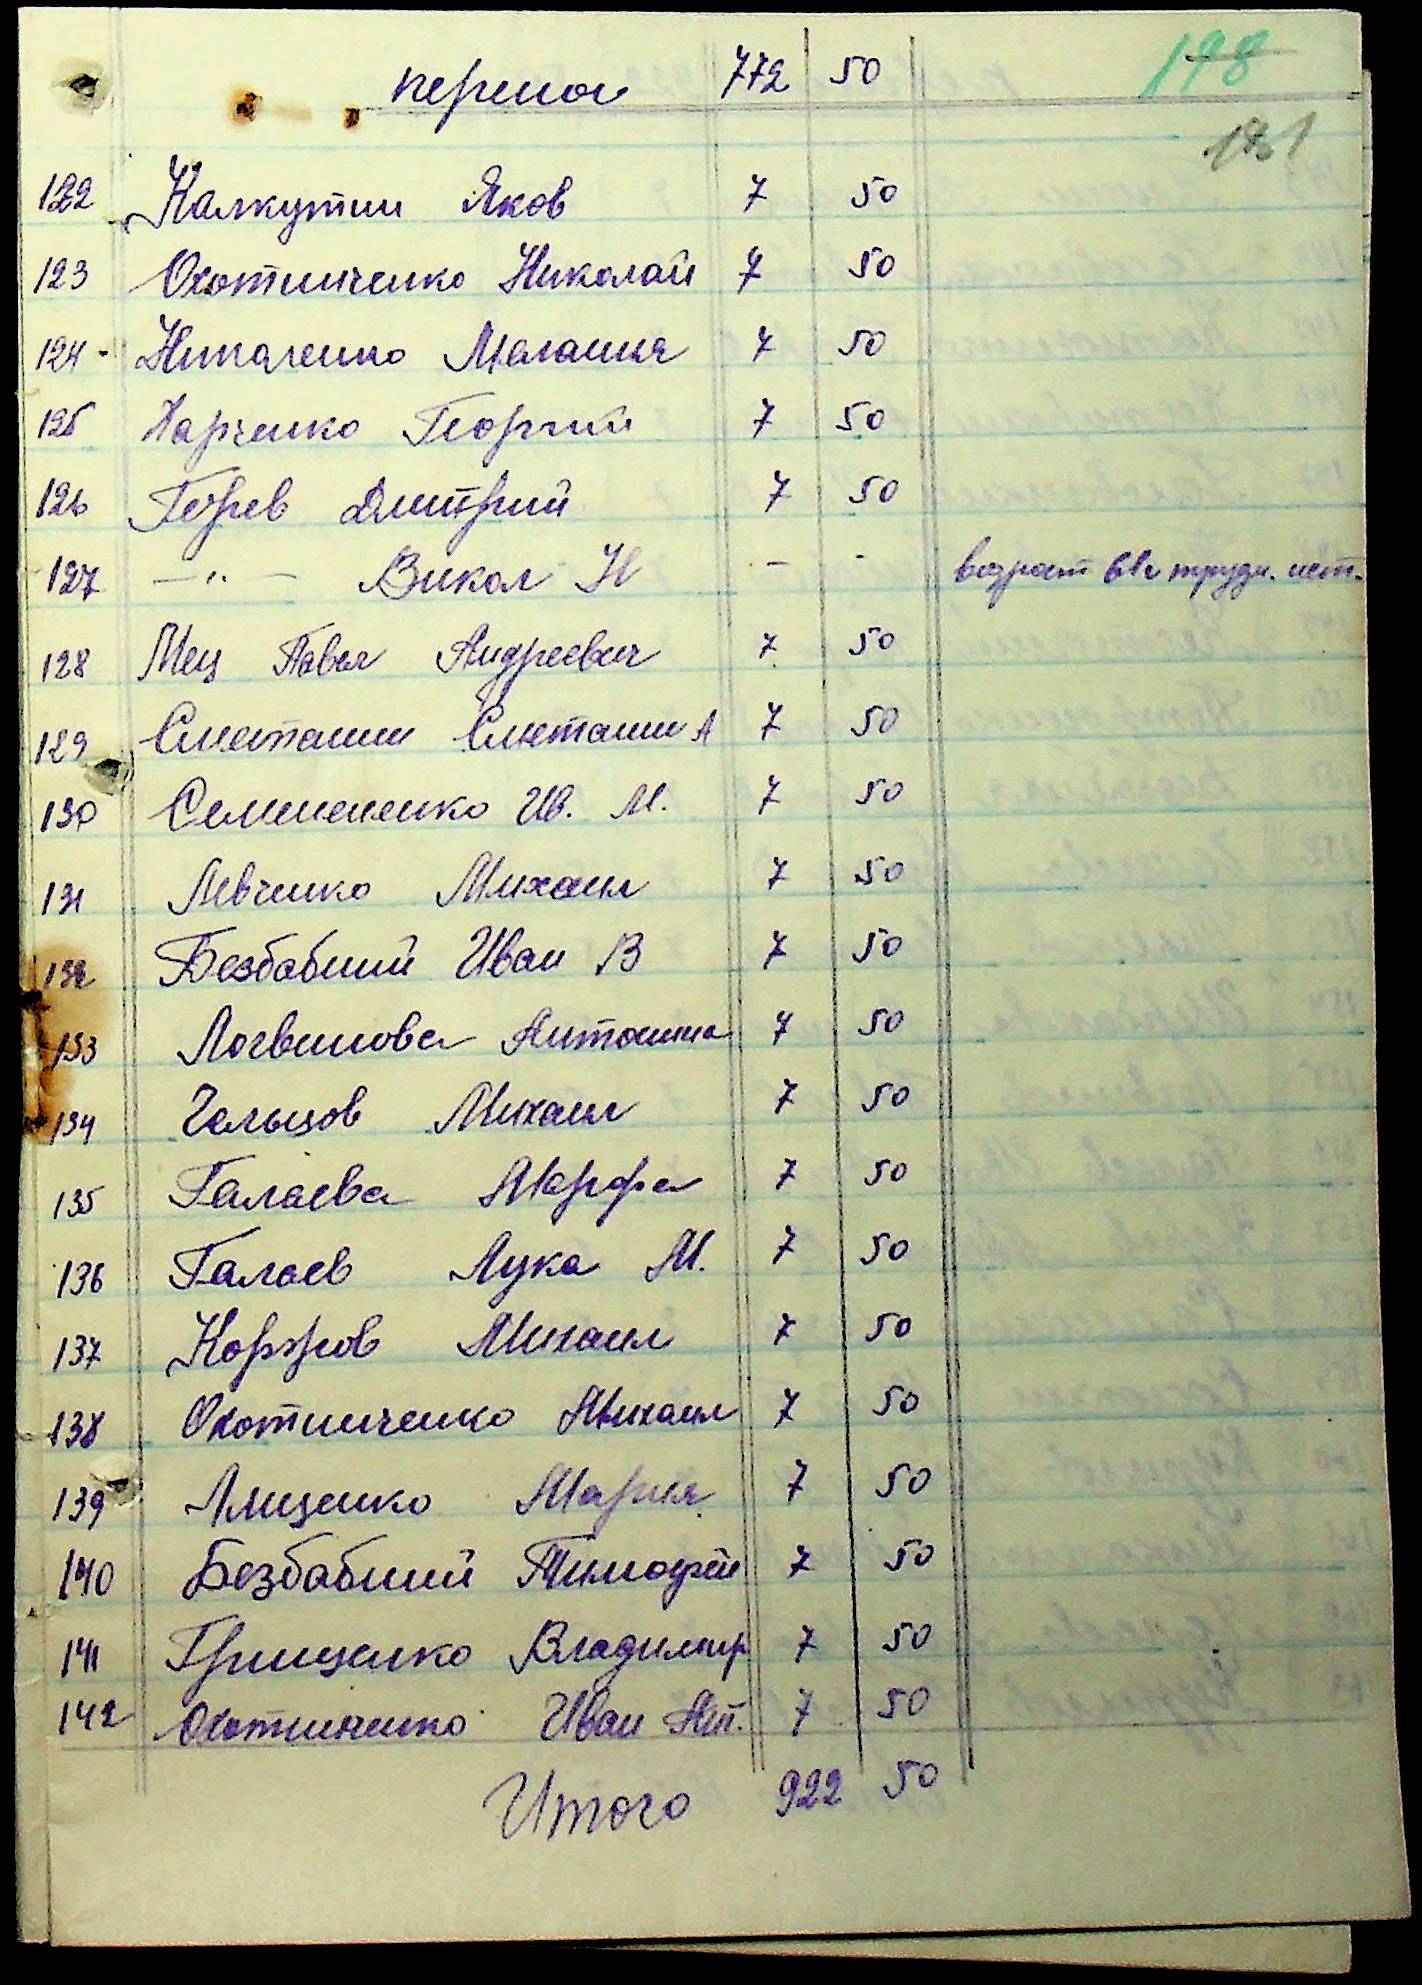 перенос 772 50 198
122 Калкутин Яков 7 50
123 Охотниченко Николай 7 50
124 - Никаченко Мелания 7 50
125 Харченко Георгий 7 50
126 Горев Дмитрий 7 50
127 — " — Викол Н - - возраст 61 г трудн. ист.
128 Мец Павел Андреевич 7 50
129 Сметанин Сметанин А 7 50
130 Семененко Ив. М. 7 50
131 Левченко Михаил 7 50
132 Безбабний Иван В 7 50
133 Логвинова Антонина 7 50
134 Чельцов Михаил 7 50
135 Галаева Марфа 7 50
136 Галаев Лука М. 7 50
137 Михаил 7 50
138 Охотниченко Михаил 7 50
139 Лященко Мария 7 50
140 Безбабний Тимофей 7 50
141 Грищенко Владимир 7 50
142 Охотниченко Иван Ант. 7 50
Итого 922 50